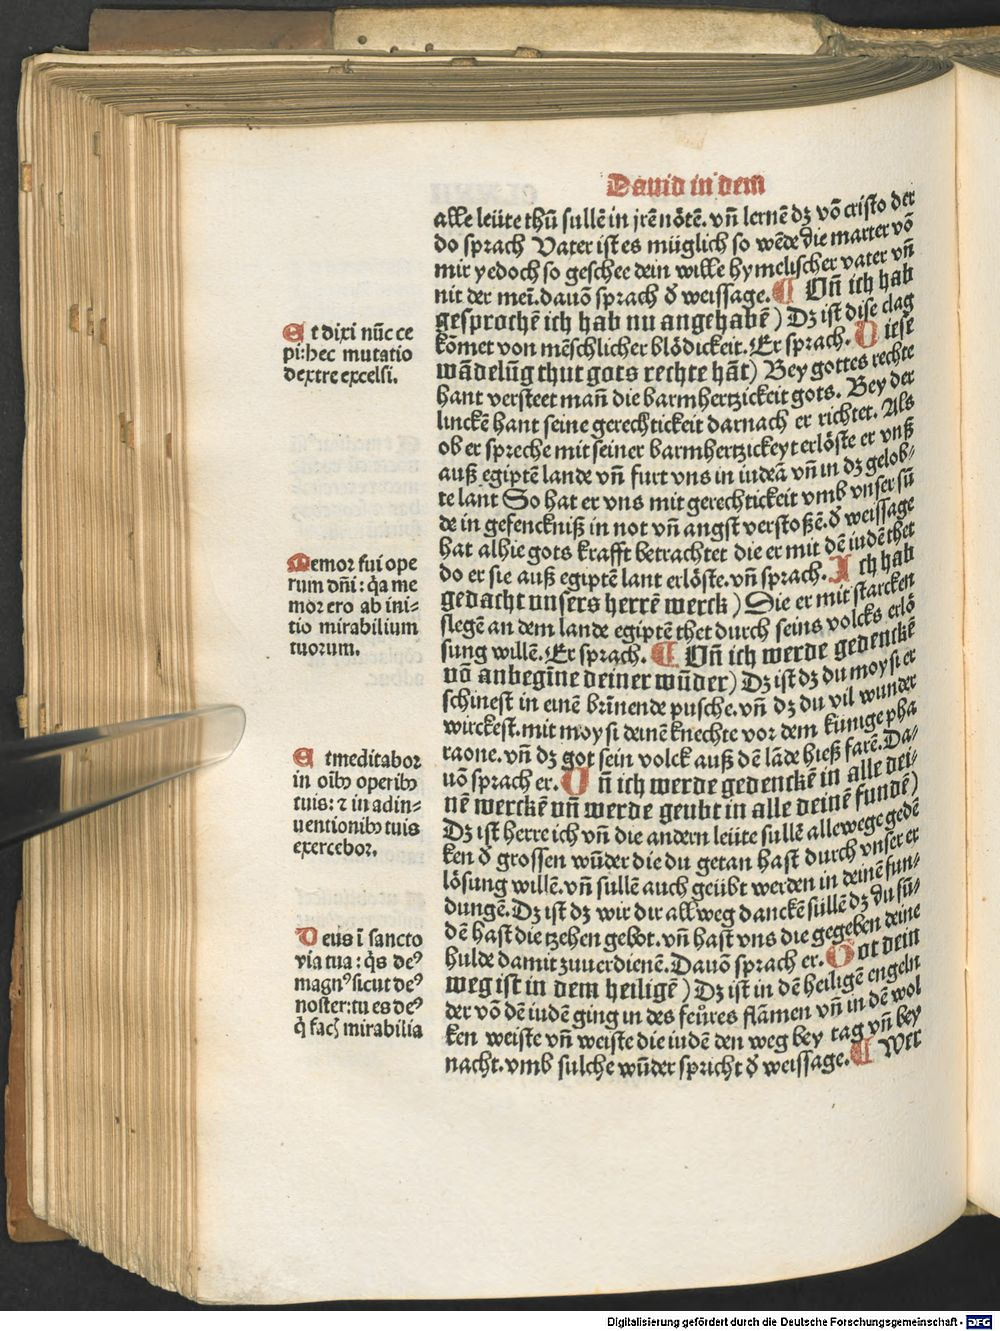 Dauid in dem
alle leüte thũ sullẽ in jrẽ nötẽ. vñ lernẽ dz võ cristo der
do sprach Vater ist es müglich so wẽde die marter võ
mir yedoch so geschee dein wille hymelischer vater vñ
nit der mei. dauõ sprach d̕ weissage. ¶ Vñ ich hab
gesprochẽ ich hab nu angehabẽ) Dz ist dise clag
kõmet von mẽschlicher blödickeit. Er sprach. Diese
wãdelũg thut gots rechte hãt) Bey gottes rechte
hant versteet mañ die barmhertzickeit gots. Bey der
linckẽ hant seine gerechtickeit darnach er richtet. Als
ob er spreche mit seiner barmhertzickeyt erlöste er vnß
auß egiptẽ lande vñ furt vns in iudeã vñ in dz gelob⸗
te lant So hat er vns mit gerechtickeit vmb vnser sũ
de in gefenckniß in not vñ angst verstoßẽ. d̕ weissage
hat alhie gots krafft betrachtet die er mit dẽ iudẽ thet
do er sie auß egiptẽ lant erlöste. vñ sprach. Ich hab
gedacht unsers herrẽ werck) Die er mit starcken
slegẽ an dem lande egiptẽ thet durch seins volcks erlö
sung willẽ. Er sprach. ¶ Vñ ich werde gedenckẽ
võ anbegĩne deiner wũder) Dz ist dz du moysi er
schinest in einẽ brĩnende pusche. vñ dz du vil wunder
wirckest. mit moysi deinẽ knechte vor dem künige pha
raone. vñ dz got sein volck auß dẽ lãde hieß farẽ. Da⸗
uõ sprach er. Vñ ich werde gedenckẽ in alle dei⸗
nẽ werckẽ vñ werde geubt in alle deinẽ fundẽ)
Dz ist herre ich vñ die andern leüte sullẽ allewege gedẽ
ken d̕ grossen wũder die du getan hast durch vnser er
lösung willẽ. vñ sullẽ auch geübt werden in deinẽ fun⸗
dungẽ. Dz ist dz wir dir allweg danckẽ süllẽ dz du sũ⸗
dẽ hast die tzehen gebot. vñ hast vns die gegeben deine
hulde damit zuuerdienẽ. Dauõ sprach er. Got dein
weg ist in dem heiligẽ) Dz ist in dẽ heiligẽ engeln
der võ dẽ iudẽ ging in des feůres flãmen vñ in dẽ wol
ken weiste vñ weiste die iudẽ den weg bey tag vñ bey
nacht. vmb sulche wũder spricht d̕ weissage. ¶ Wer
Et dixi nũc ce
pi: hec mutatio
dextre excelsi.
Memor fui ope
rum dñi: q̃a me
mor ero ab ini⸗
tio mirabilium
tuorum.
Et meditabor
in oĩbꝫ operibꝫ
tuis: ⁊ in adin⸗
uentionibꝫ tuis
exercebor.
Deus ĩ sancto
via tua: q̃s deꝰ
magnꝰ sicut deꝰ
noster: tu es deꝰ
q̃ facꝭ mirabilia
Digitalisierung gefördert durch die Deutsche Forschungsgemeinschaft - DFG